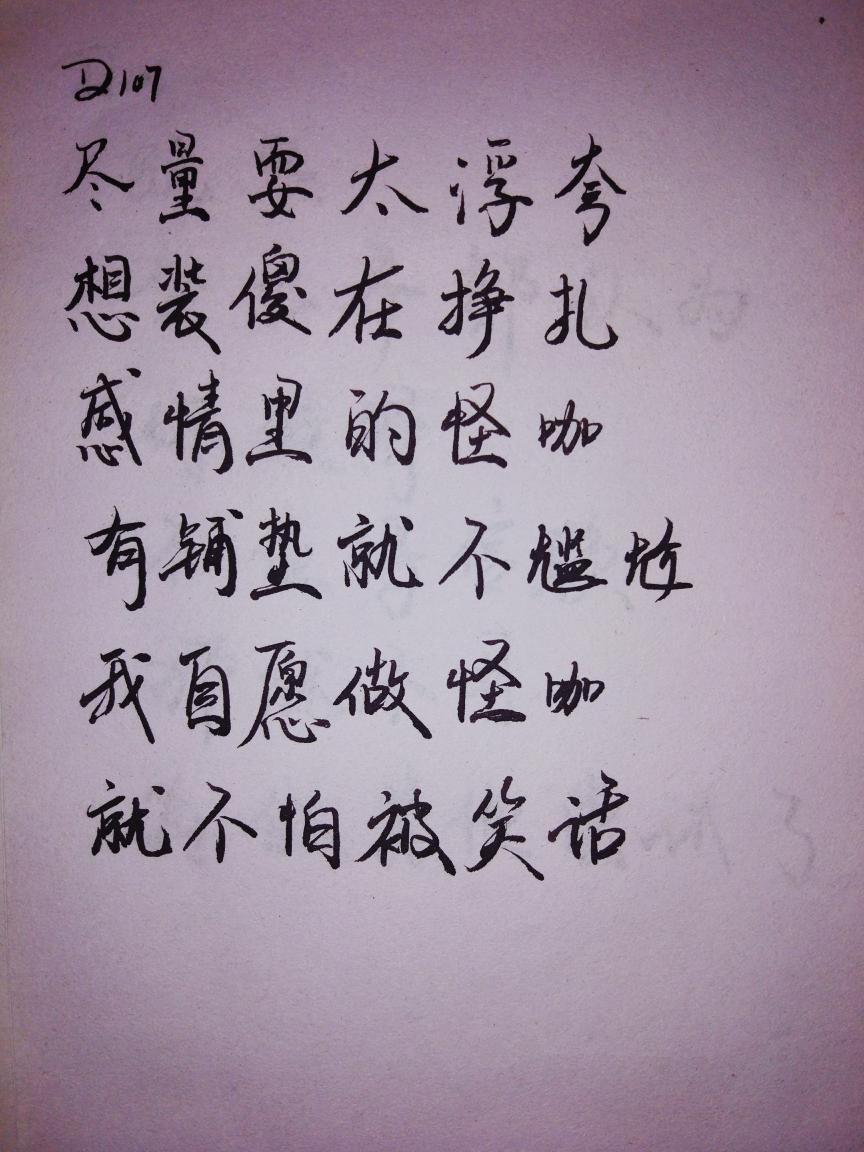 D107
尽量耍太浮夸
想装傻在挣扎
感情里的怪咖
有铺垫就不尴尬
我自愿做怪咖
就不怕被笑话